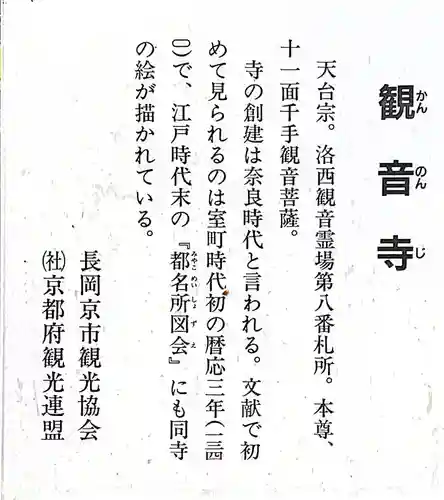 観音寺
かんのんじ
天台宗。洛西観音霊場第八番札所。本尊、
十一面千手観音菩薩。
寺の創建は奈良時代と言われる。文献で初
めて見られるのは室町時代初の暦応三年(一三四
〇)で、江戸時代末の『都名所図会』にも同寺
みやこめいしょずえ
の絵が描かれている。
長岡京市観光協会
㈳京都府観光連盟